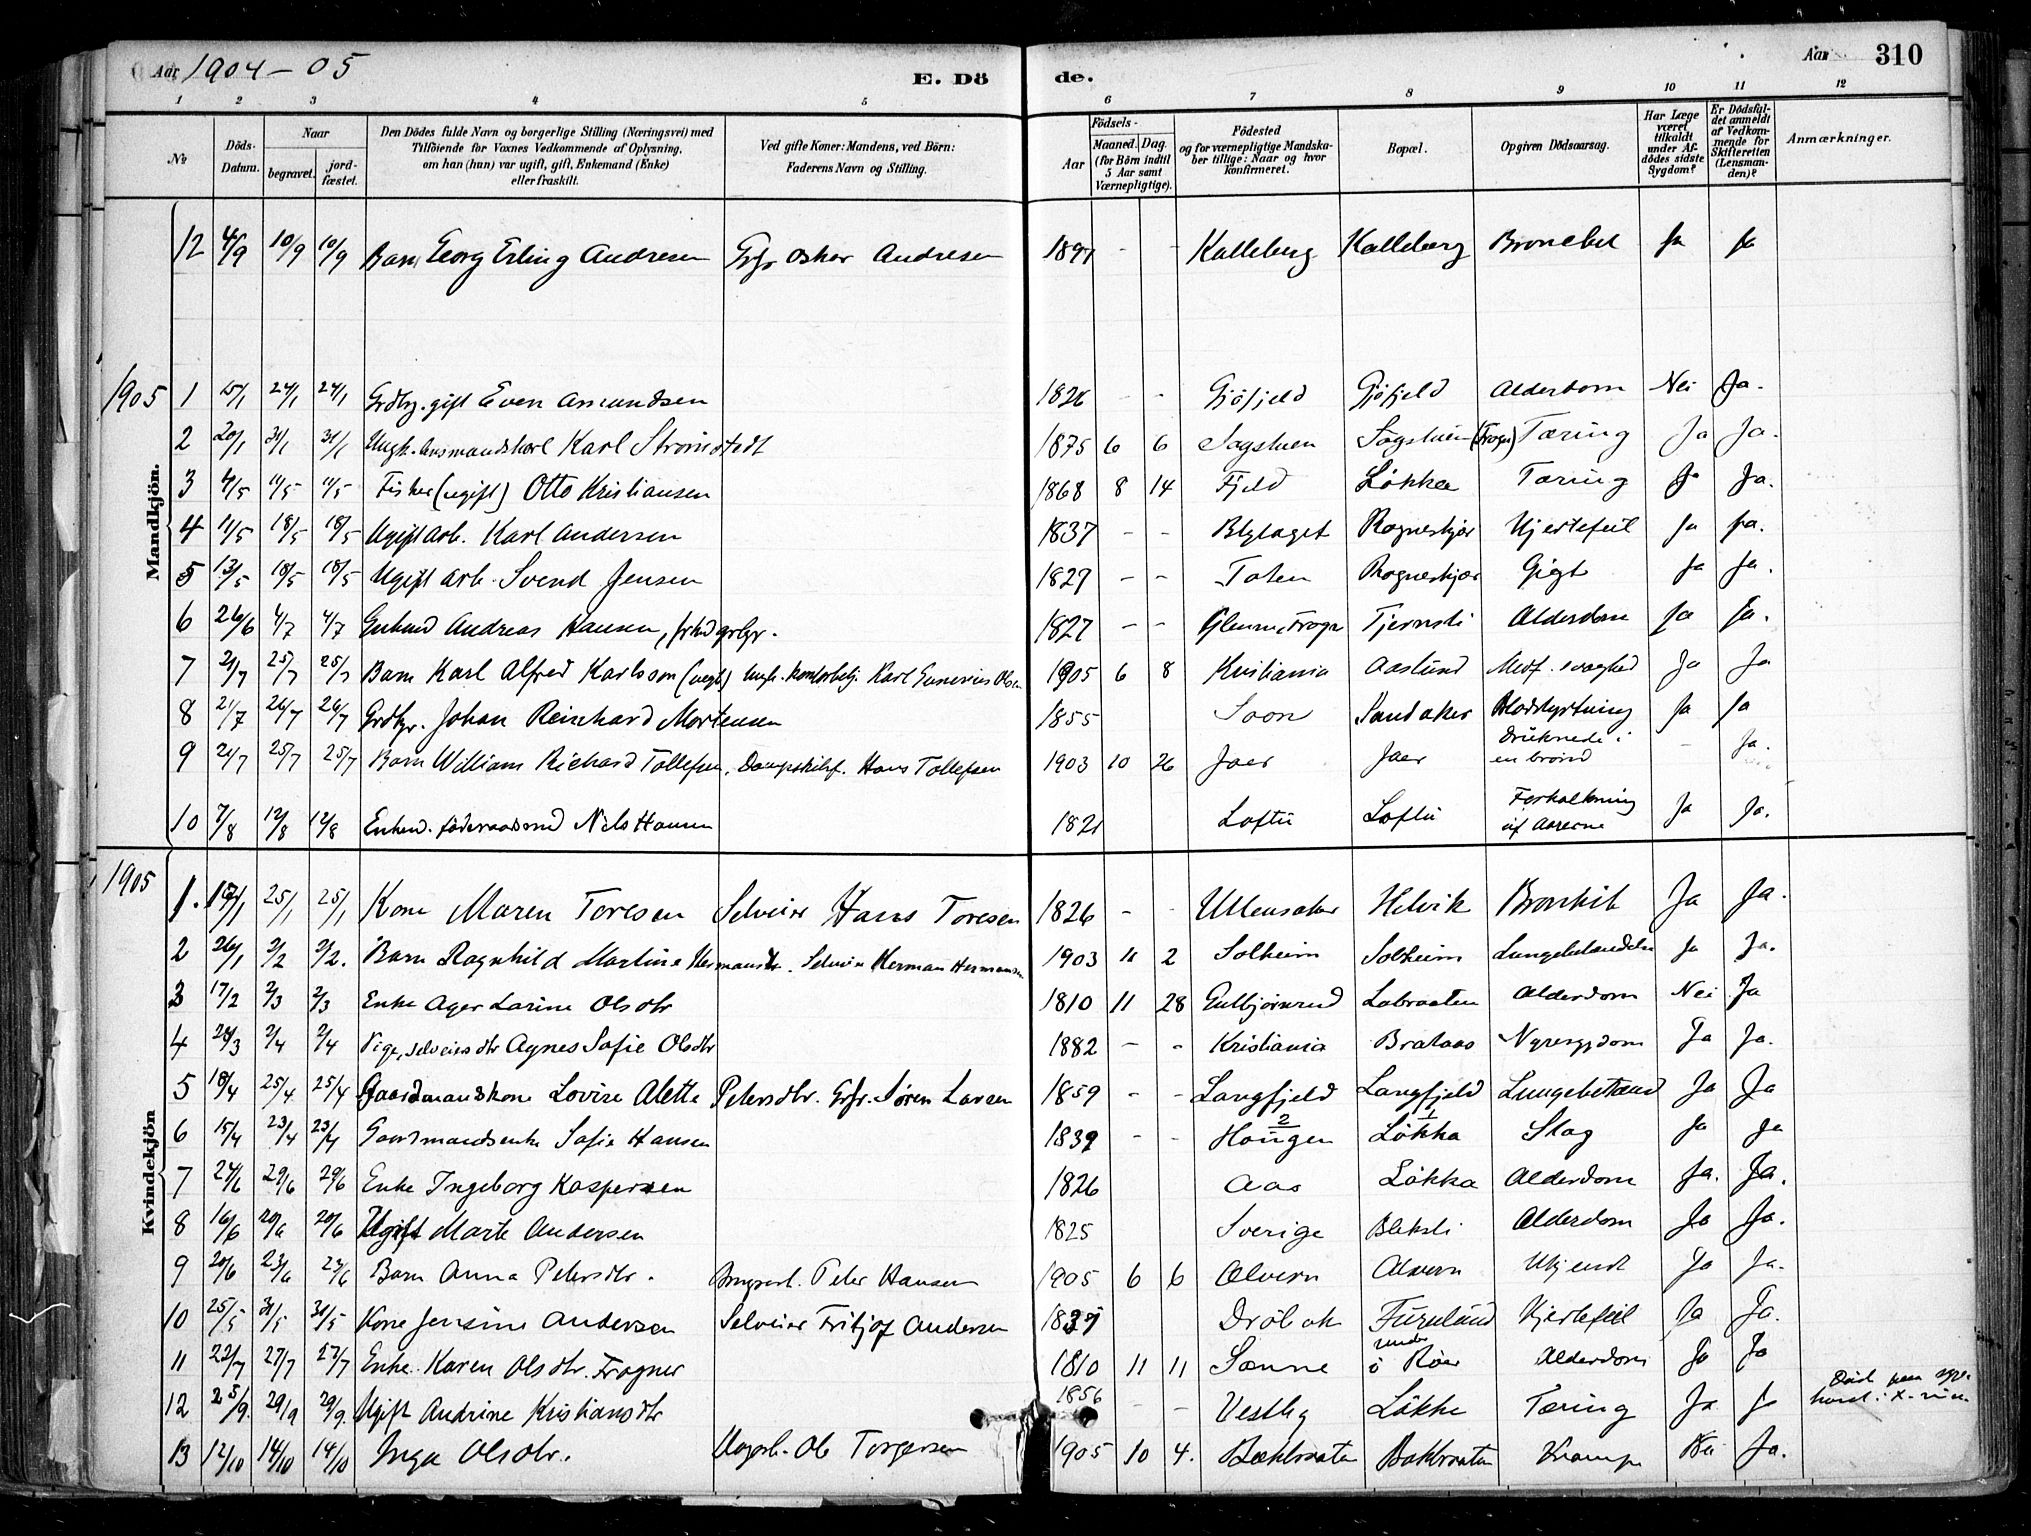 Aar 1904 - 05 E. Dö de. Aar 310
1 2 3 4 5 6 7 8 9 10 11 12
No Döds-Datum. Naar begravet. jordfæstet. Den Dödes fulde Navn og borgerlige Stilling (Næringsvei) med Tilföiende for Voxnes Vedkommende af Oplysning, om han (hun) var ugift, gift, Enkemand (Enke) eller fraskilt. Ved gifte Koner: Mandens, ved Börn: Faderens Navn og Stilling. Födsels- Aar Maaned. Dag. (for Börn indtil 5 Aar samt Værnepligtige). Födested og for værnepligtige Mandskaber tillige: Naar og hvor konfirmeret. Bopæl. Opgiven Dödsaarsag. Har Læge været tilkaldt under Afdödes sidste Sygdom? Er Dödsfaldet anmeldt af Vedkommende for Skifteretten (Lensmanden)? Anmærkninger.
Mandkjön.
12 4/9 10/9 10/9 Barn Georg Erling Andresen Grfr Oskar Andresen 1897 - - Kalleberg Kalleberg Ja Ja
1905 1 15/1 24/1 24/1 Grdbr. gift Even Amundsen 1826 - - Gjöfjeld Gjöfjeld Alderdom Nei Ja.
2 20/1 31/1 31/1 Ungk. lensmandskarl Karl Strömstedt 1875 6 6 Sagstuen Sagstuen (Frogn) Tæring Ja Ja.
3 4/5 11/5 11/5 Fisker (ugift) Otto Kristiansen 1868 8 14 Fjeld Løkka Tæring Ja Ja.
4 11/5 18/5 18/5 Ugift arb. Karl Andersen 1837 - - Blylaget Rogneskjær Hjertefeil Ja Ja.
5 13/5 18/5 18/5 Ugift arb. Svend Jensen 1827 - - Toten Rogneskjær Gigt Ja Ja.
6 26/6 4/7 4/7 Enkmd Andreas Hansen, 1827 - - Glenne, Frogn Tjernsli Alderdom Ja Ja.
7 21/7 25/7 25/7 Barn Karl Alfred Karlsson (uegt) Ungk. kontorbetj. Karl Gunerius Olsen 1905 6 8 Kristiania Aaslund Medf. svaghed Ja Ja
8 21/7 26/7 26/7 Grdbr. Johan Reinhard Mortensen 1855 Soon Sandaker Blodstyrtning Ja Ja
9 21/7 25/7 25/7 Barn William Richard Tollefsen. Dampskibsf. Hans Tollefsen 1903 10 26 Jaer Jaer Druknede i en brønd - Ja.
10 7/8 12/8 12/8 Enkem. föderaadsmd Nils Hansen 1821 Loftu Loftu Forkalkning af Aarerne Ja Ja.
Kvindekjön
1905 1. 15/1 25/1 25/1 Kone Maren Toresen Selveier Hans Toresen 1826 - - Ullensaker Helvik Bronkit Ja Ja.
2 26/1 2/2 2/2. Barn Ragnhild Martine Hermansdtr. Selveier Herman Hermansen 1903 11 2 Solheim Solheim Lungebetændelse Ja Ja.
3 17/2 2/3 2/3 Enke Larine Olsdtr 1810 11 28 Gulbjørnrud Labraaten Alderdom Nei Ja
4 28/3 2/4 2/4 Pige, selveiersdtr Agnes Sofie Olsdtr 1882 - - Kristiania Brataas Nyresygdom Ja Ja.
5 18/4 25/4 25/4 Gaardmandskone Lovise Alette Petersdtr. Grfr. Søren Larsen 1859 - - Langfjeld Langfjeld Lungebetænd Ja Ja
6 15/4 23/4 23/4 Gaardmandsenke Sofie Hansen 1839 - - Haugen Løkka Slag Ja Ja
7 24/6 29/6 29/6 Enke Ingeborg Kaspersen 1826 Aas Løkka Alderdom Ja. Ja.
8 16/6 20/6 20/6 Ugift Marte Andersen 1825 Sverige Bleksli Alderdom Ja Ja.
9 20/6 23/6 23/6 Barn Anna Petersdtr. Peter Hansen 1905 6 6 Alvern Alvern Ukjendt Ja Ja.
10 25/5 31/5 31/5 Kone Jensine Andersen Selveier Fritjof Andersen 1837 Dröbak Furulund Hjertefeil Ja Ja.
11 22/7 27/7 27/7 Enke Karen Olsdtr. Frogner 1810 11 11 Sænne Røer Alderdom Ja Ja
12 25/9. 29/9 29/9. Ugift Andrine Kristiansdtr 1856 - - Vestby Løkke Tæring Ja Ja Död paa syge
13 12/10 14/10 14/10 Inga Olsdtr. Ungkl. Ole Torgersen 1905 10 4. Bækbraaten Bakbraaten Krampe Nei Ja.